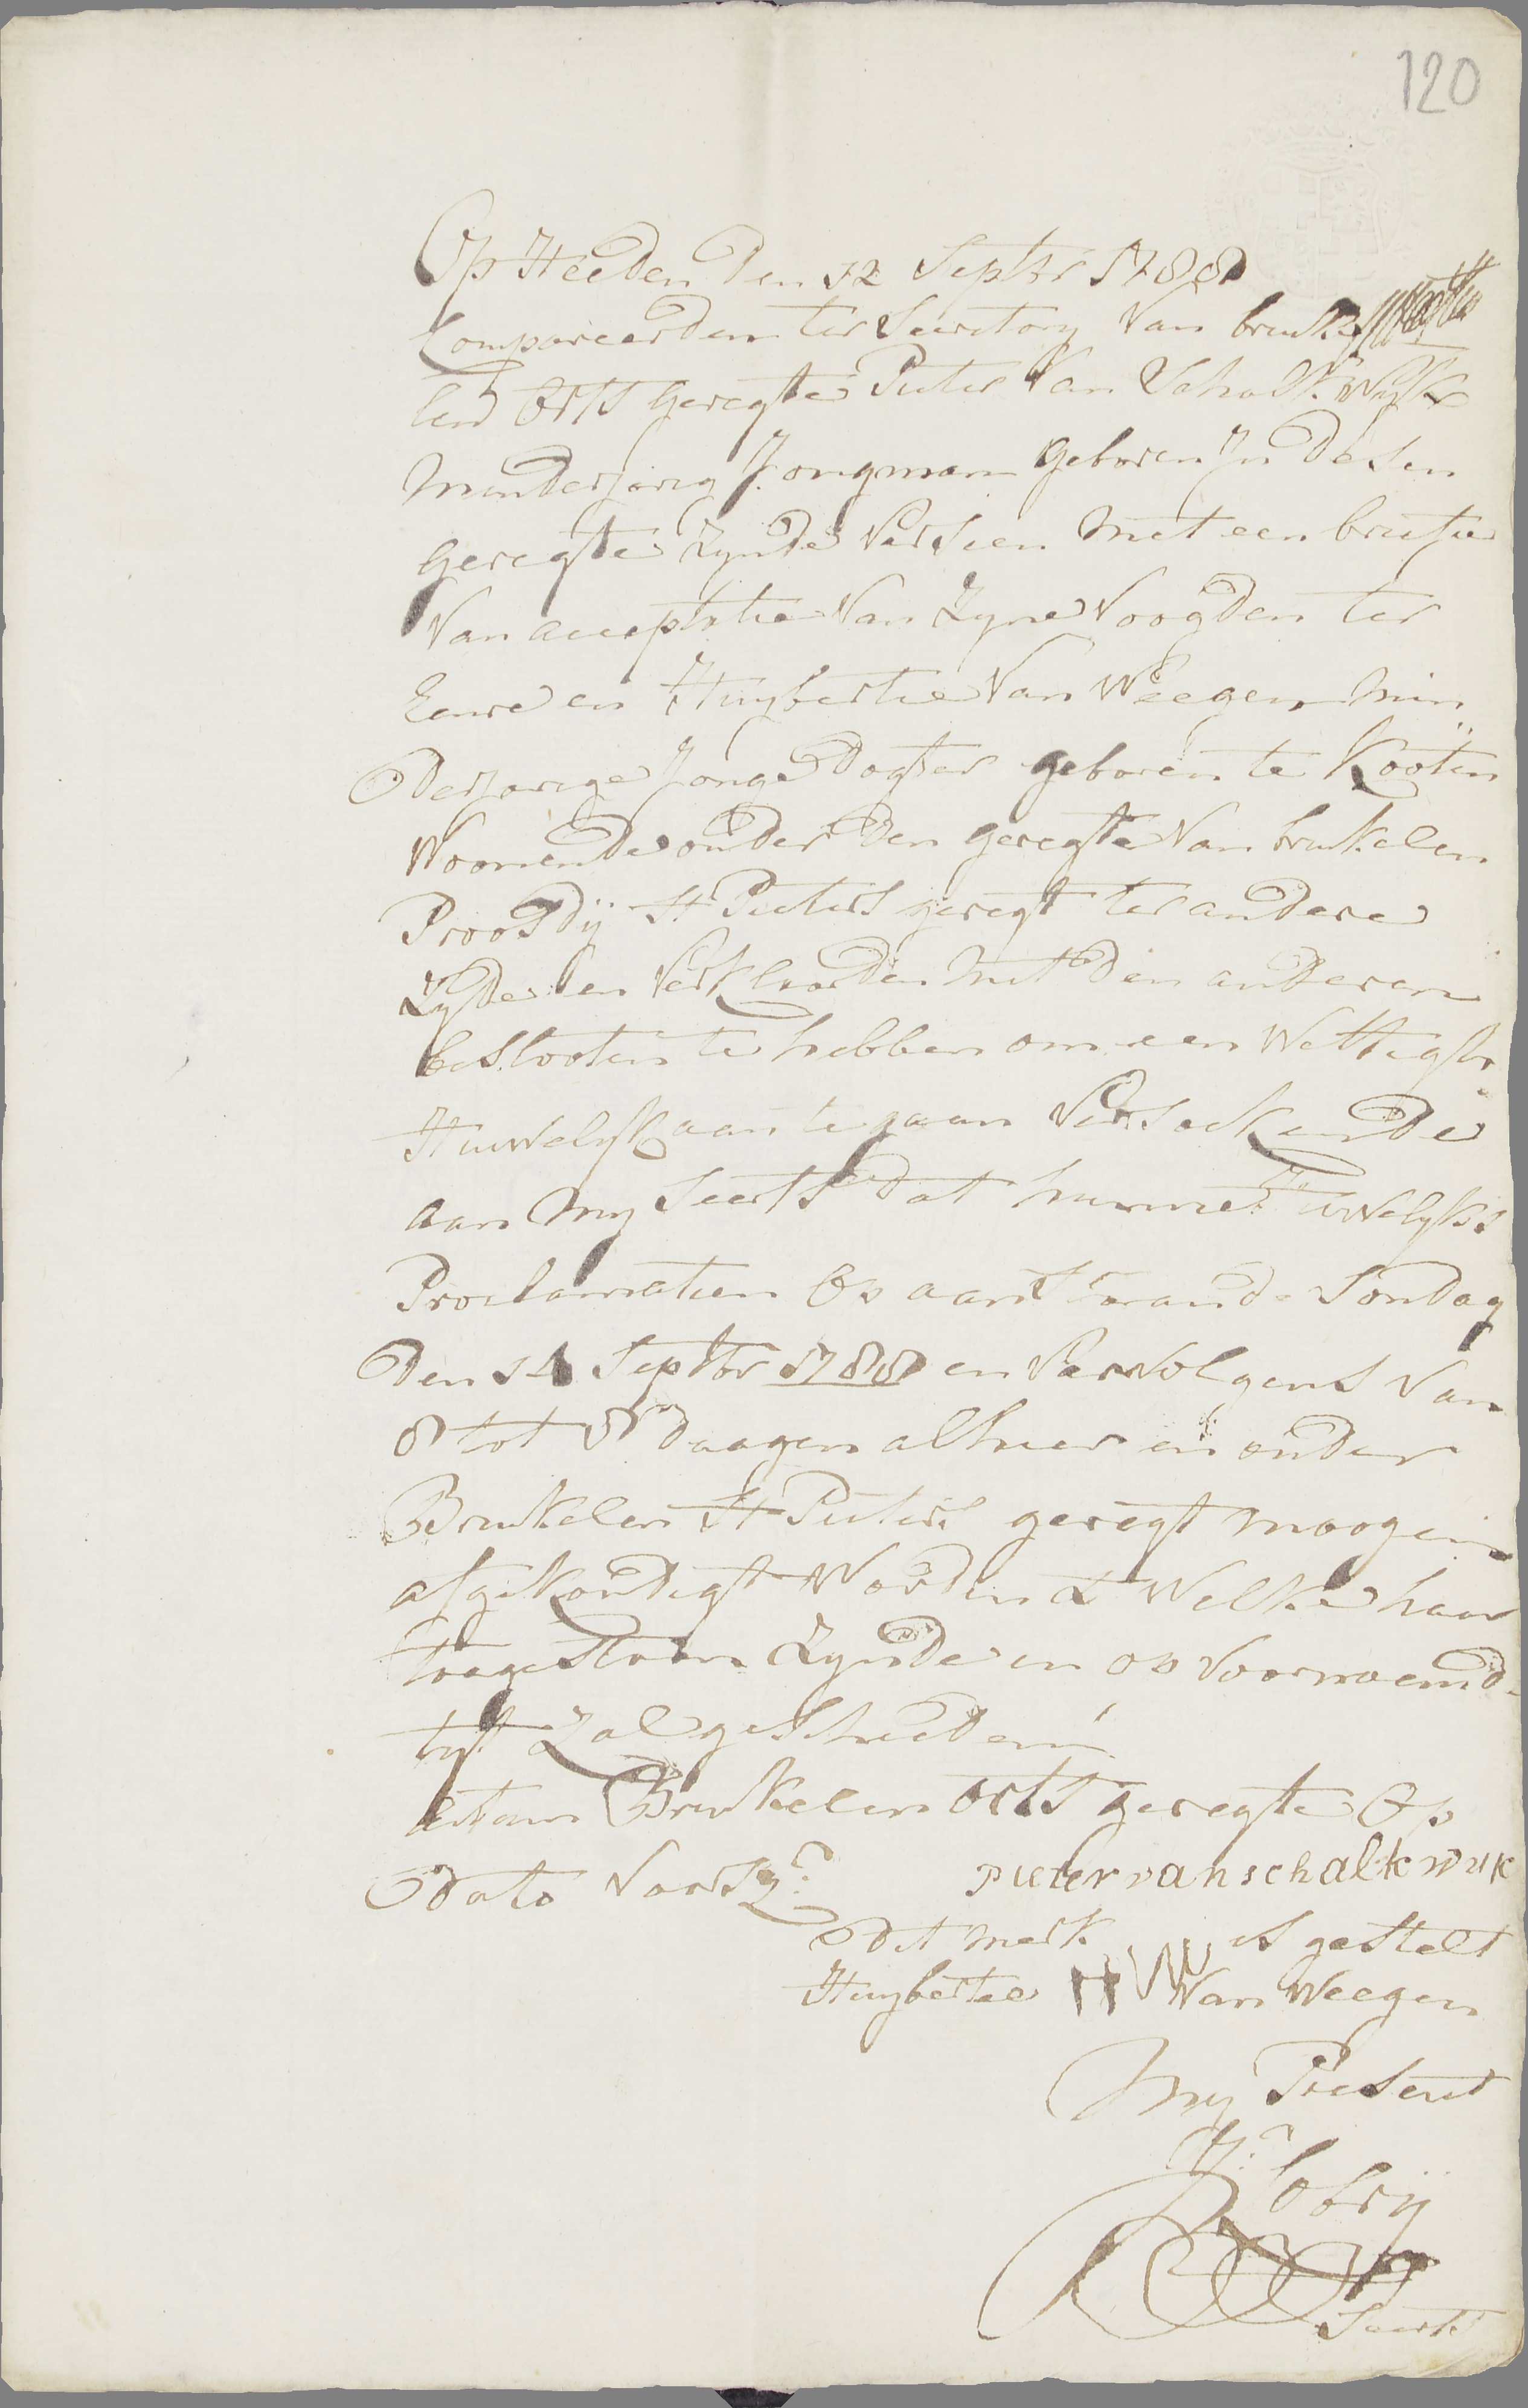 120
Op Heeden Den 12 Septbr 1788
Compareerden ter Secretory Van bruke
len Orts Geregte Pieter Van Schalkwijk
Minderjarig Jongman Geboren In Desen
geregte Zynde Versien Met een briefie
Van acceptatie Van Zyne Voogden ter
Eenre en Huybertie Van Weegen Min„
Derjarige Jonge Dogter geboren te Kooten
Woonende onder Den geregte Van brukelen
Proosdij St Pieters geregt ter andere
Zyde en Verklaarden Met Den anderen
beslooten te hebben om een Wettigh
Huwelijk aan te gaan Versoekende
aan My Secrts Dat hunne Huwelyks
Proclamatien Op aanstaande Sondag
Den 14 Septbr 1788 en Vervolgens Van
8 tot 8 Daagen alhier en onder
Brukelen St Pieters geregt moogen
afgekondigt Worden 't Welke haar
toegestaan Zynde en op Voornoemd
tyt Zal geschieden
Actum Brukelen Orts geregte Op
Dato Voorsz:
pieter van schalkwijk
Dit Merk is gestelt
Huybertie HVW Van Weegen
My Present
Secrts